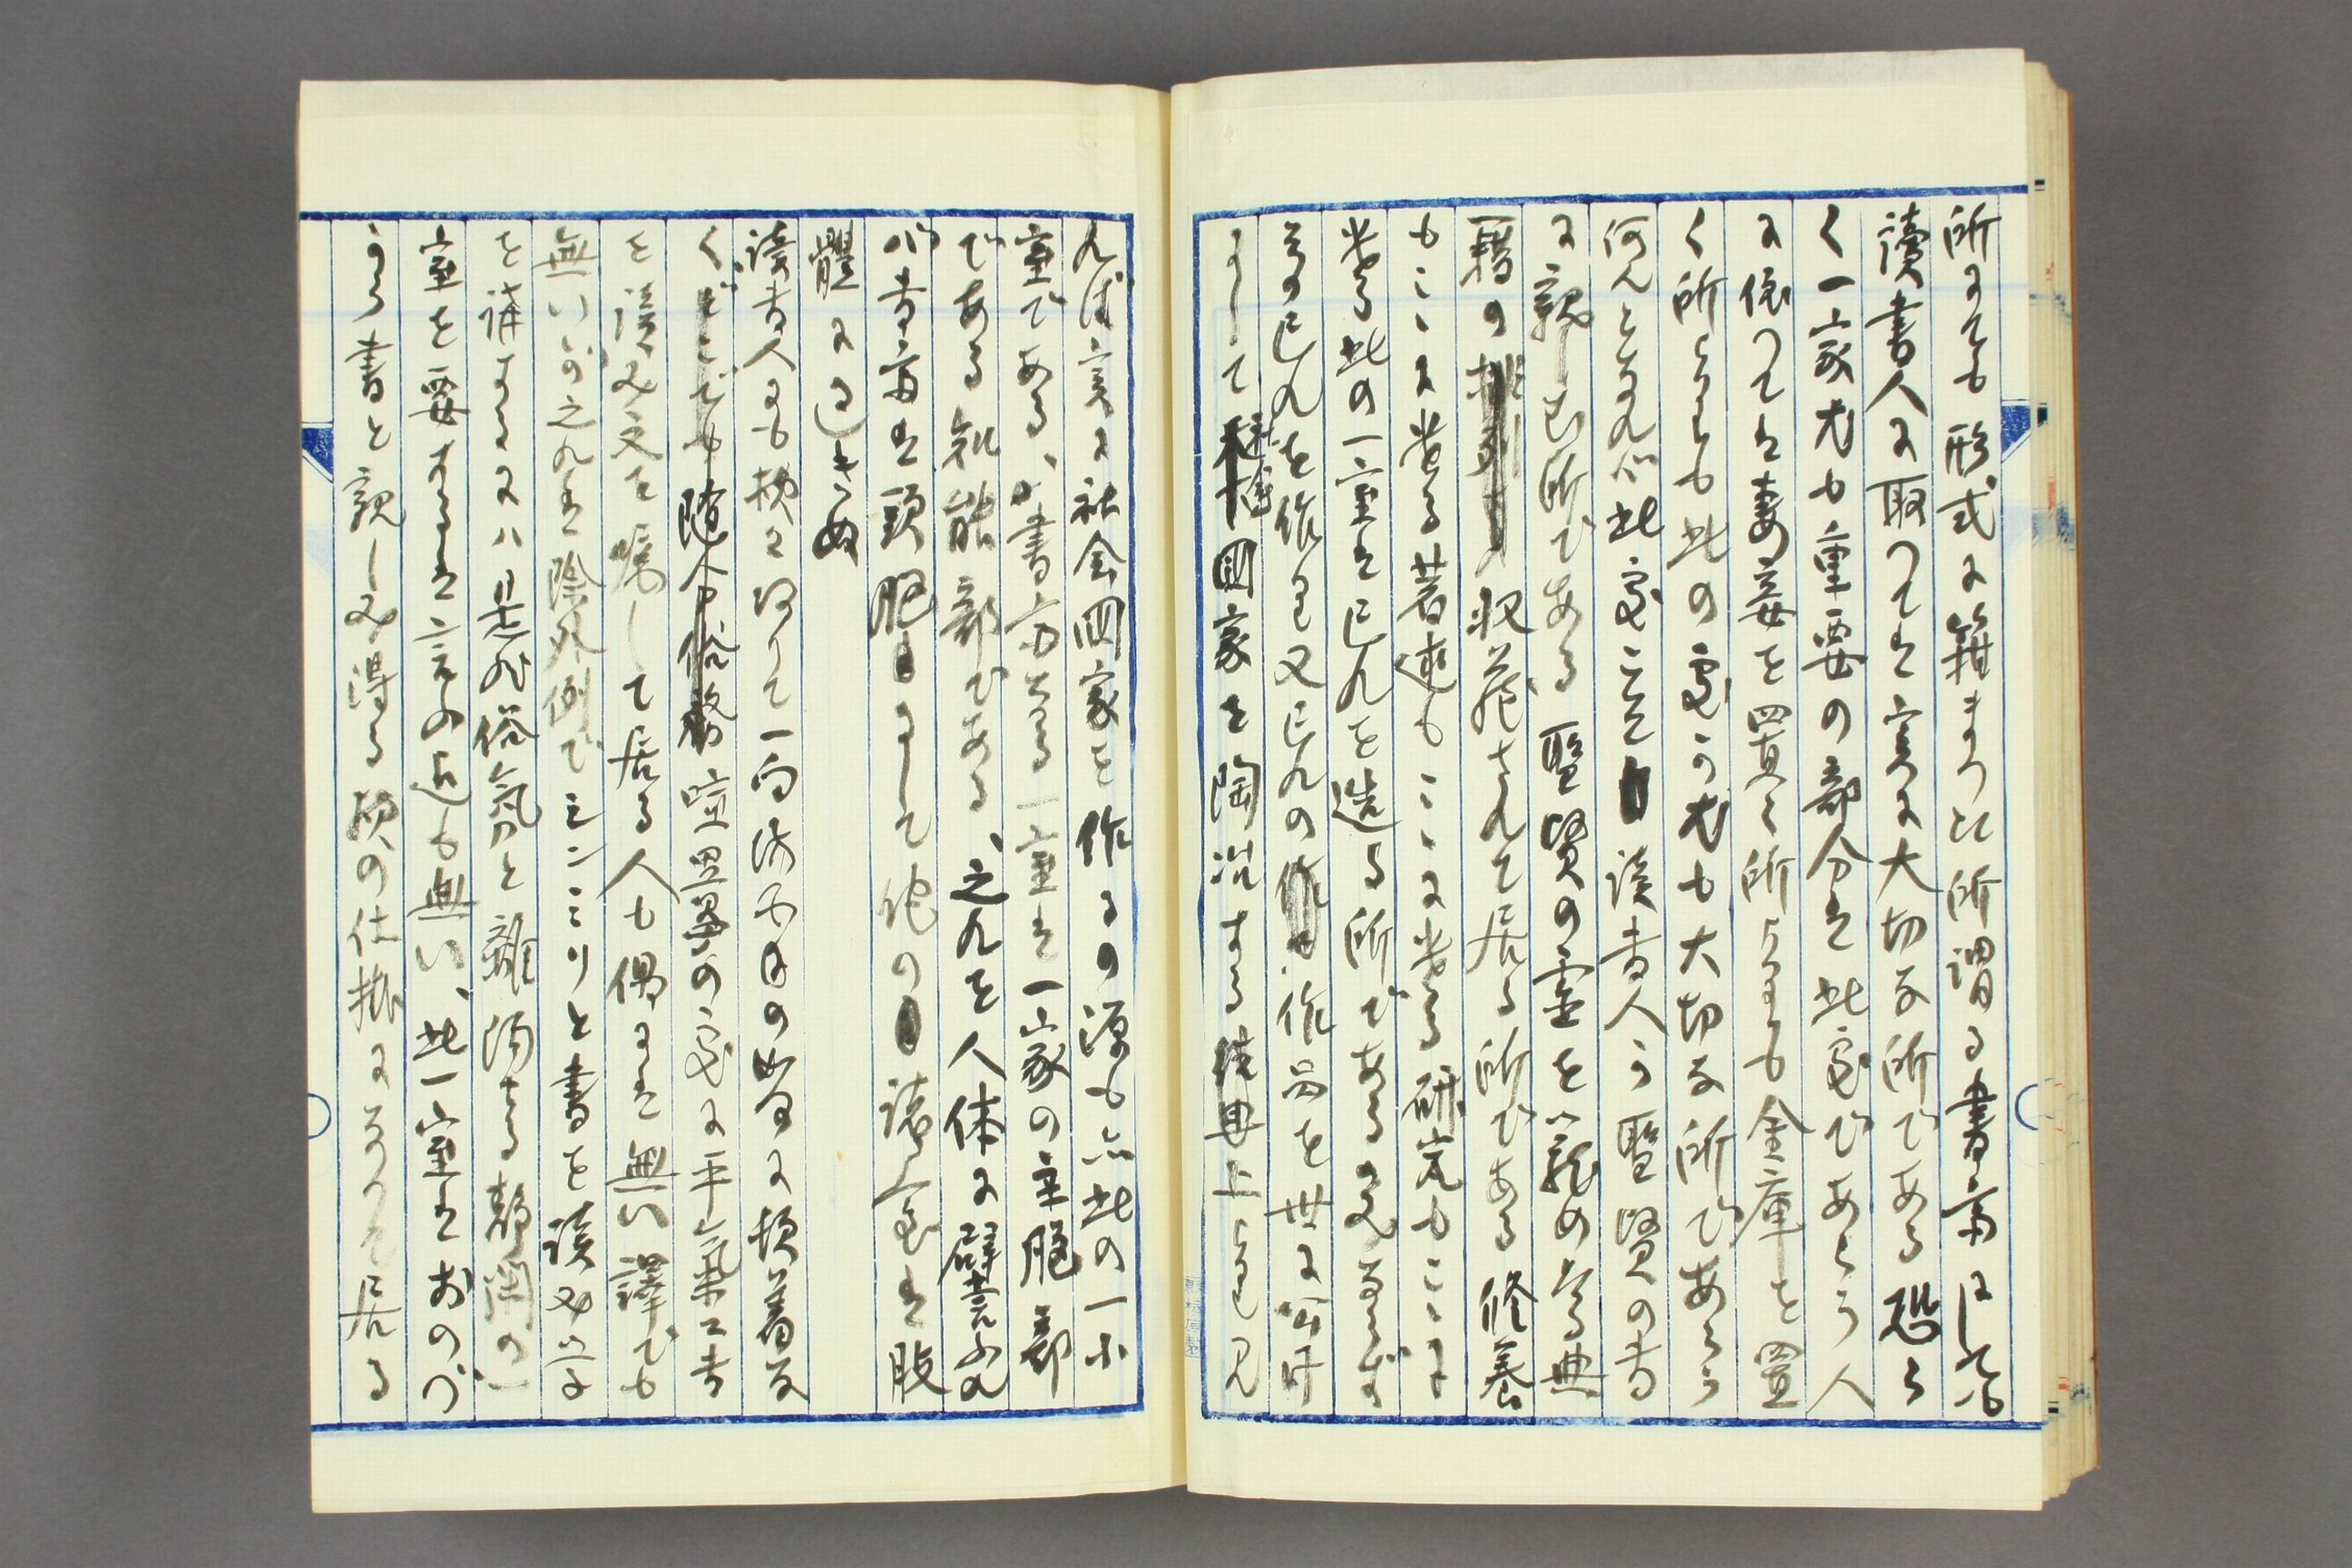 所にても形式に籍まつた所謂る書斎はしも
讀書人に取つては実に大切な所である恐ら
く一家尤も重要の部分は此室であらう人
に依つては妻妾を置く所よりも金庫を置
く所よりも此の室が尤も大切な所であらう
何んとなれバ此室こそ讀書人が聖賢の書
に親しむ所である聖賢の霊を籠めたる典
籍の収蔵されて居る所である修養
もここに営る著述もここに営る研究もここに
営る此の一室は己れを造る所である啻なら
その己れを作り又己れの作品を世に公け
にして社會國家を陶冶する徳典上より見
れば実に社会国家を作るの源も亦此の一小
室である、書斎なる一室は一家の主脳部
である知能部である、之れを人体に譬ふれ
バ書斎は頭脳にして他の諸室は肢
體に過きぬ
讀書人にも様々ありて一向傍若無人の如に頓着な
く随分俗務喧囂の室に平気で書
を読み文を嘱して居る人も偶には無い譯でも
無いが之れは除外例でシンミリと書を読み学
を講するには是非俗氣と離隔する静閑の一
室を要するは言の迄も無い、此一室はおのづ
から書と親しみ得る様の仕掛になつて居る